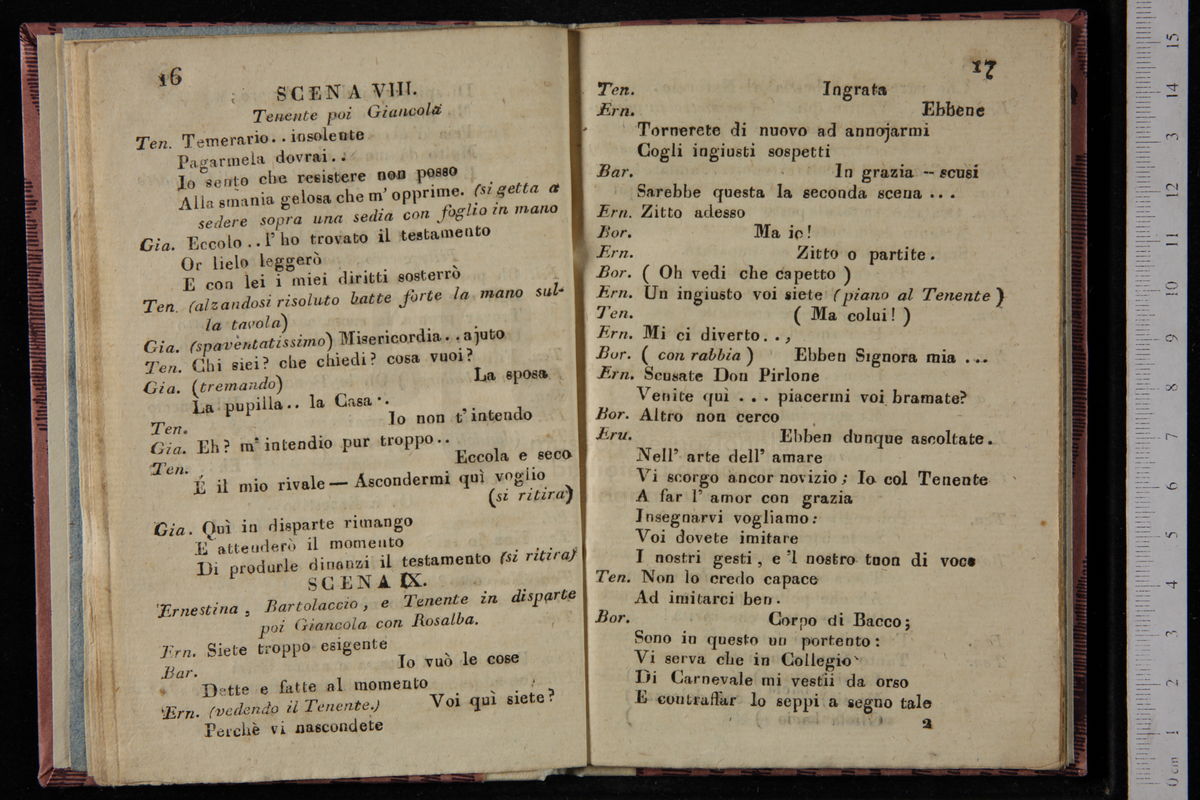 16
SCENA VIII.
Tenente poi Giancola
Ten. Temerario. . insolente
Pagarmela dovrai. .
Io sento che resistere non posso
Alla smania gelosa che m' opprime. (si getta a
sedere sopra una sedia con foglio in mano
Gia. Eccolo . . l' ho trovato il testamento
Or lielo leggerò
E con lei i miei diritti sosterrò
Ten. (alzandosi risoluto batte forte la mano sul-
la tavola)
Gia. (spaventatissimo) Misericordia. . ajuto
Ten. Chi siei? che chiedi? cosa vuoi?
Gia. (tremando) La sposa
La pupilla. . la Casa . .
Ten. Io non t' intendo
Gia. Eh? m' intendio pur troppo. .
Ten. Eccola e seco
É il mio rivale — Ascondermi quì voglio
(si ritira)
Gia. Quì in disparte rimango
E attenderò il momento
Di produrle dinanzi il testamento (si ritira)
SCENA IX.
Ernestina, Bartolaccio, e Tenente in disparte
poi Giancola con Rosalba.
Ern. Siete troppo esigente
Bar. Io vuò le cose
Dette e fatte al momento
Ern. (vedendo il Tenente.) Voi quì siete?
Perchè vi nascondete
17
Ten. Ingrata
Ern. Ebbene
Tornerete di nuovo ad annojarmi
Cogli ingiusti sospetti
Bar. In grazia -- scusi
Sarebbe questa la seconda scena . . .
Ern. Zitto adesso
Bor. Ma io!
Ern. Zitto o partite.
Bor. ( Oh vedi che capetto )
Ern. Un ingiusto voi siete (piano al Tenente )
Ten. ( Ma colui! )
Ern. Mi ci diverto. . ,
Bor. ( con rabbia ) Ebben Signora mia . . .
Ern. Scusate Don Pirlone
Venite qui . . . piacermi voi bramate?
Bor. Altro non cerco
Eru. Ebben dunque ascoltate.
Nell' arte dell' amare
Vi scorgo ancor novizio; Io col Tenente
A far l' amor con grazia
Insegnarvi vogliamo:
Voi dovete imitare
I nostri gesti, e 'l nostro tuon di voce
Ten. Non lo credo capace
Ad imitarci ben.
Bor. Corpo di Bacco;
Sono in questo un portento:
Vi serva che in Collegio
Di Carnevale mi vestii da orso
E contraffar lo seppi a segno tale
2
15
14
13
12
11
10
9
8
7
6
5
4
3
2
1
0 cm